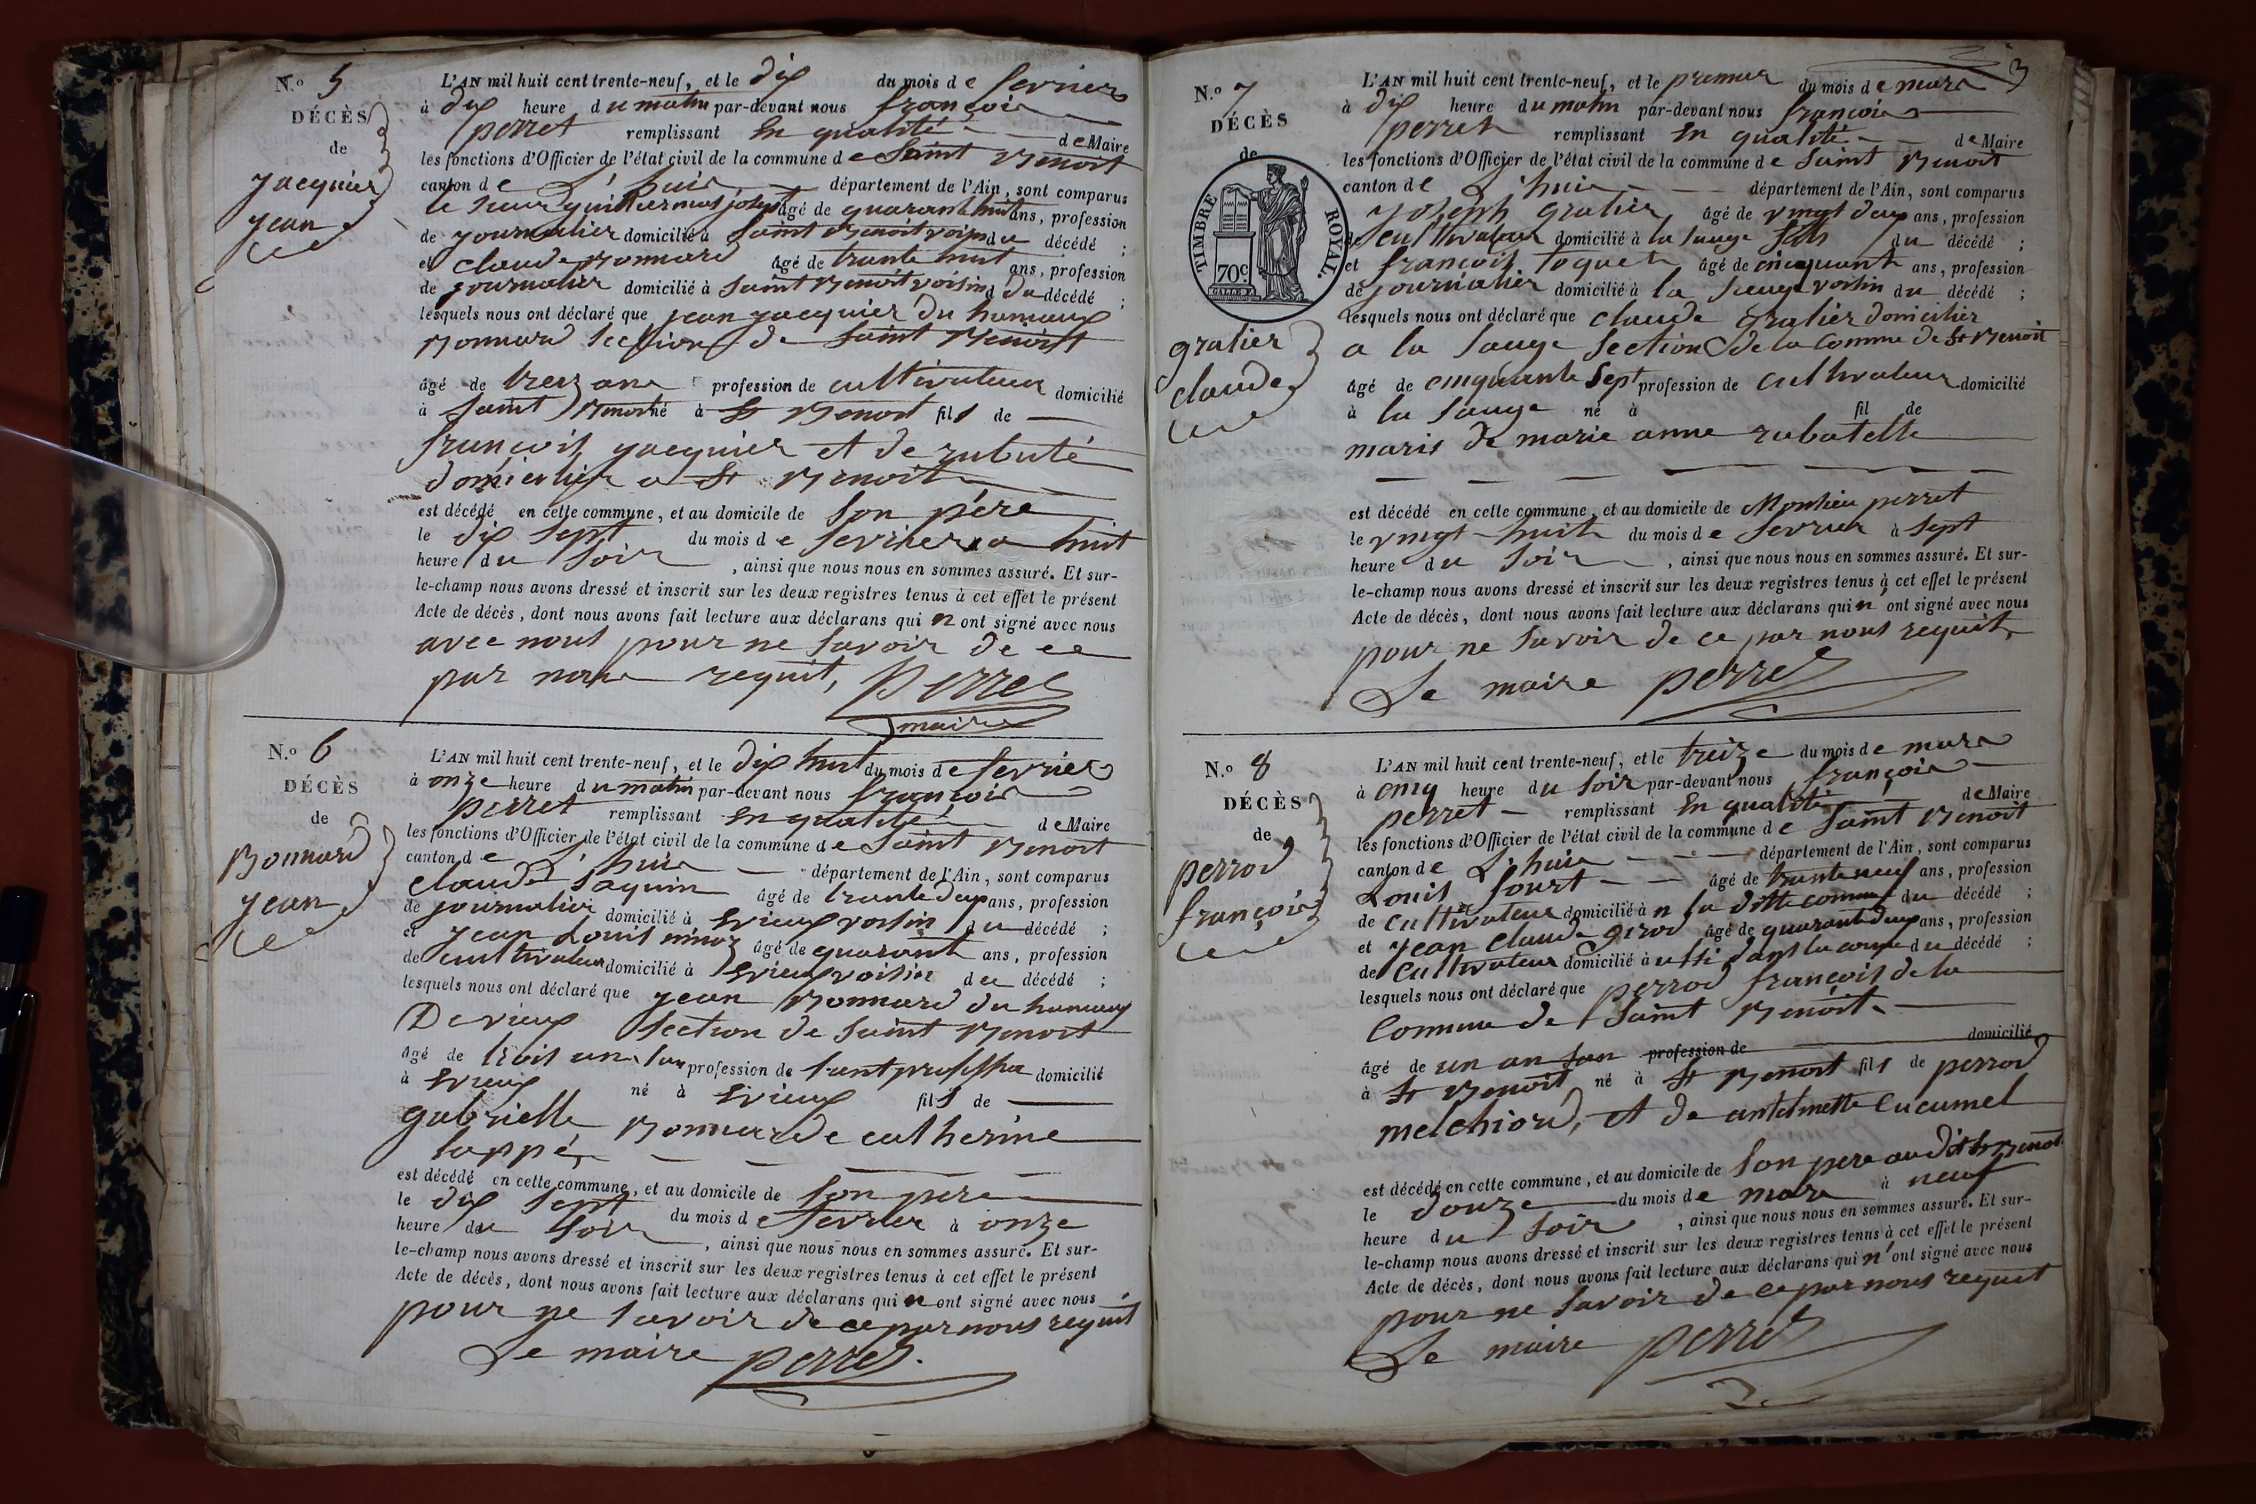 N.º 5
DÉCÈS
de
Jacquier
jean
L'AN mil huit cent trente-neuf, et le dix du mois de fevrier
à dix heure du matin par-devant nous françois
perret remplissant en qualité de Maire
les fonctions d'Officier de l'état civil de la commune de Saint Benoit
canton de L'huis département de l'Ain, sont comparus
le sieur joseph âgé de quarante huit ans, profession
de journalier domicilié à Saint Benoit voisin du décédé ;
et claude Bonnard âgé de trante huit ans, profession
de journalier domicilié à Saint Benoit voisin du décédé ;
lesquels nous ont déclaré que jean jacquier du hameaux
Bonnard section de Saint Benoist
âgé de ans profession de cultivateur domicilié
à Saint Benoit né à St Benoit fils de
françois jacquier et de rubaté
domicilier a St Benoit
est décédé en cette commune, et au domicile de son père
le dix sept du mois de fevrier a huit
heure du soir, ainsi que nous nous en sommes assuré. Et sur-
le-champ nous avons dressé et inscrit sur les deux registres tenus à cet effet le présent
Acte de décès, dont nous avons fait lecture aux déclarans qui n ont signé avec nous
avec nous pour ne savoir de ce
par nous requit, perret
maire
N.º 6
DÉCÈS
de
Bonnard
jean
L'AN mil huit cent trente-neuf, et le dix huit du mois de fevrier
à onze heure du matin par-devant nous françois
perret remplissant en qualité de Maire
les fonctions d'Officier de l'état civil de la commune de Saint Benoit
canton de L'huis département de l'Ain, sont comparus
claude Saquin âgé de trante deux ans, profession
de journalier domicilié à Evieux voisin du décédé ;
et jean Louis âgé de quarante ans, profession
de cultivateur domicilié à Evieux voisin du décédé ;
lesquels nous ont déclaré que jean Bonnard du hameaux
Devieux section de Saint Benoit
âgé de trois ans profession de domicilié
à Evieux né à Evieux fils de
gabrielle Bonnard de catherine
tappé,
est décédé en cette commune, et au domicile de son pere
le dix sept du mois de fevrier à onze
heure du soir, ainsi que nous nous en sommes assuré. Et sur-
le-champ nous avons dressé et inscrit sur les deux registres tenus à cet effet le présent
Acte de décès, dont nous avons fait lecture aux déclarans qui n ont signé avec nous
pour ne savoir de ce par nous requit
Le maire perret
3
N.º 7
DÉCÈS
de
TIMBRE ROYAL.
70c.
gratier
claude
L'AN mil huit cent trente-neuf, et le premier du mois de mars
à dix heure du matin par-devant nous françois
perret remplissant en qualité de Maire
les fonctions d'Officier de l'état civil de la commune de Saint Benoit
canton de L'huis département de l'Ain, sont comparus
joseph gratier âgé de vingt deux ans, profession
de cultivateur domicilié à la Sauge fils du décédé ;
et françois toquet âgé de cinquante ans, profession
de journalier domicilié à la Sauge voisin du décédé ;
lesquels nous ont déclaré que claude gratier domicilier
a la Sauge section de la Comme de St Benoit
âgé de cinquante sept profession de cultivateur domicilié
à la Sauge né à fil de
maris de marie anne rubatelle
est décédé en cette commune, et au domicile de Monsieu perret
le vingt huit du mois de fevrier à sept
heure du soir, ainsi que nous nous en sommes assuré. Et sur-
le-champ nous avons dressé et inscrit sur les deux registres tenus à cet effet le présent
Acte de décès, dont nous avons fait lecture aux déclarans qui n' ont signé avec nous
pour ne savoir de ce par nous requit,
Le maire perret
N.º 8
DÉCÈS
de
perrod
françois
L'AN mil huit cent trente-neuf, et le treize du mois de mars
à cinq heure du soir par-devant nous françois
perret remplissant en qualité de Maire
les fonctions d'Officier de l'état civil de la commune de Saint Benoit
canton de L'huis département de l'Ain, sont comparus
Louis Jourt âgé de trante neuf ans, profession
de cultivateur domicilié à la ditte du décédé ;
et jean claude girod âgé de quarante deux ans, profession
de cultivateur domicilié à dans la du décédé ;
lesquels nous ont déclaré que perrod françois de la
Commune de Saint Benoit
âgé de un an profession de domicilié
à St Benoit né à St Benoit fils de perrod
melchiord, et de antelmette Cucumel
est décédé en cette commune, et au domicile de son pere au dit St Benoit
le douze du mois de mars à neuf
heure du soir, ainsi que nous nous en sommes assuré. Et sur-
le-champ nous avons dressé et inscrit sur les deux registres tenus à cet effet le présent
Acte de décès, dont nous avons fait lecture aux déclarans qui n' ont signé avec nous
pour ne savoir de ce par nous requit
Le maire perret